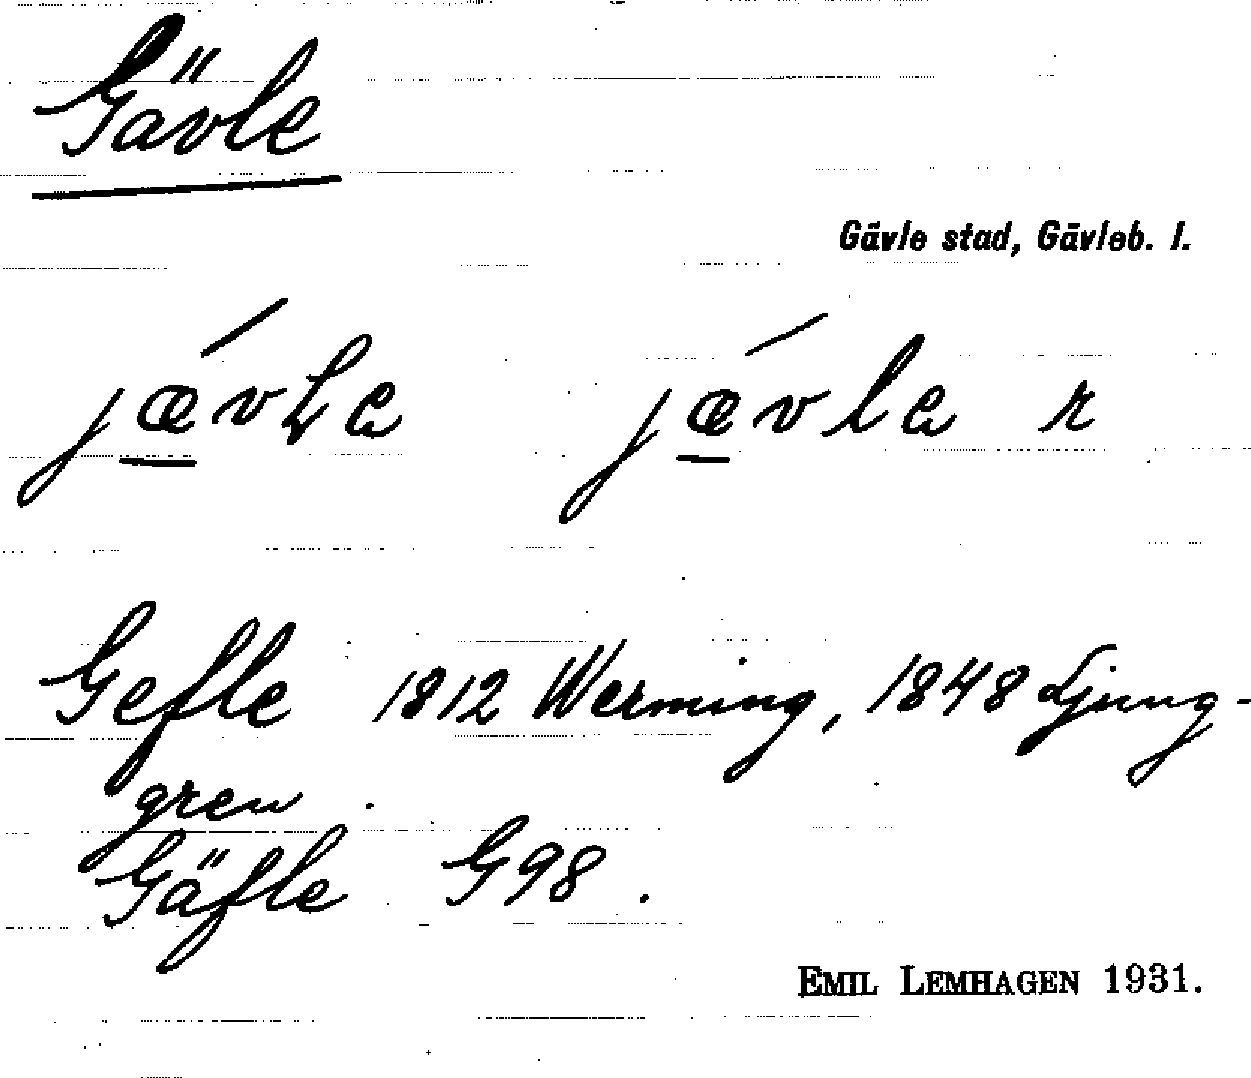 Gävle
Gävle stad, Gävleb. l.
jǽvLa jǽvla r
Gefle 1812 Werming, 1848 Ljung-
gren.
Gäfle G98.
EMIL LEMHAGEN 1931.